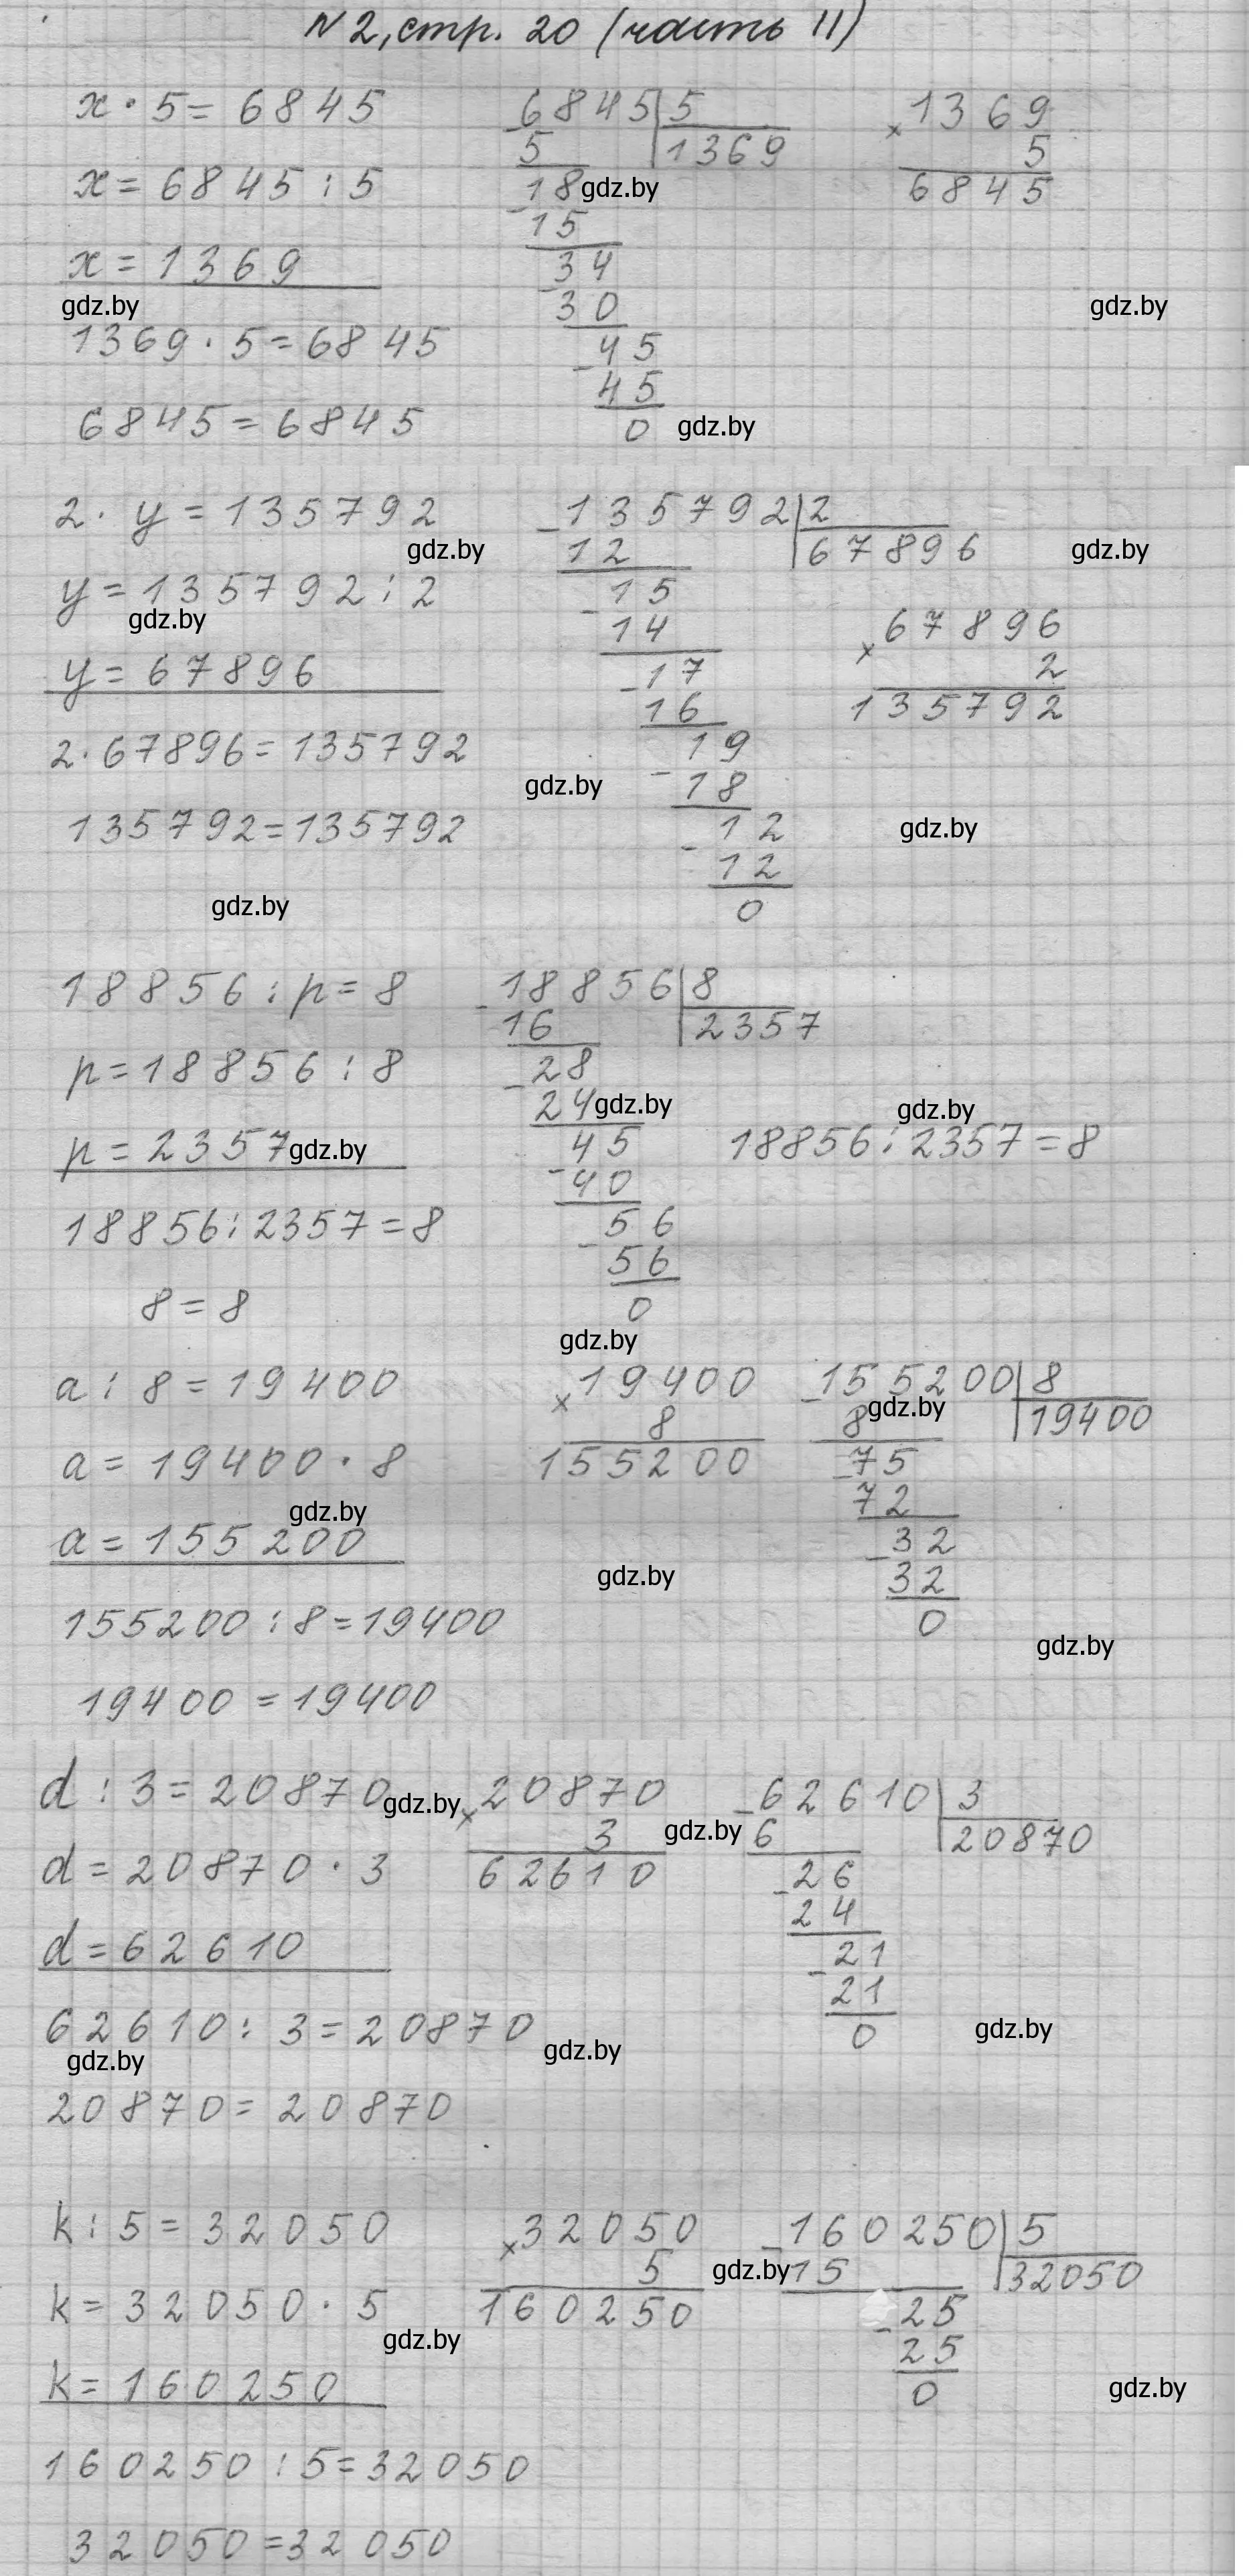 N2, стр. 20 (часть II)
x · 5 = 6845
x = 6845 : 5
x = 1369
gdz.by
1369 · 5 = 6845
6845 = 6845
6845 5
5 1369
18 gdz.by
15
34
30
45
45
0 gdz.by
× 1369
5
6845
gdz.by
2 · y = 135792
gdz.by
y = 135792 : 2
gdz.by
y = 67896
2 · 67896 = 135792
135792 = 135792
gdz.by
135792 2
12 67896
15
14
17
16
19
gdz.by
18
12
12
0
gdz.by
× 67896
2
135792
gdz.by
18856 : p = 8
p = 18856 : 8
p = 2357 gdz.by
18856 : 2357 = 8
8 = 8
18856 8
16 2357
28
24 gdz.by
45
40
56
56
0
gdz.by
gdz.by
18856 : 2357 = 8
a : 8 = 19400
a = 19400 · 8
gdz.by
a = 155200
155200 : 8 = 19400
19400 = 19400
× 19400
8
155200
gdz.by
155200 8
8 gdz.by 19400
75
72
32
32
0
gdz.by
d : 3 = 20870 gdz.by
d = 20870 · 3
d = 62610
62610 : 3 = 20870
gdz.by
20870 = 20870
× 20870
3 gdz.by
62610
gdz.by
62610 3
6 20870
26
24
21
21
0
gdz.by
k : 5 = 32050
k = 32050 · 5
gdz.by
k = 160250
160250 : 5 = 32050
32050 = 32050
× 32050
5 gdz.by
160250
160250 5
15 32050
25
25
0
gdz.by